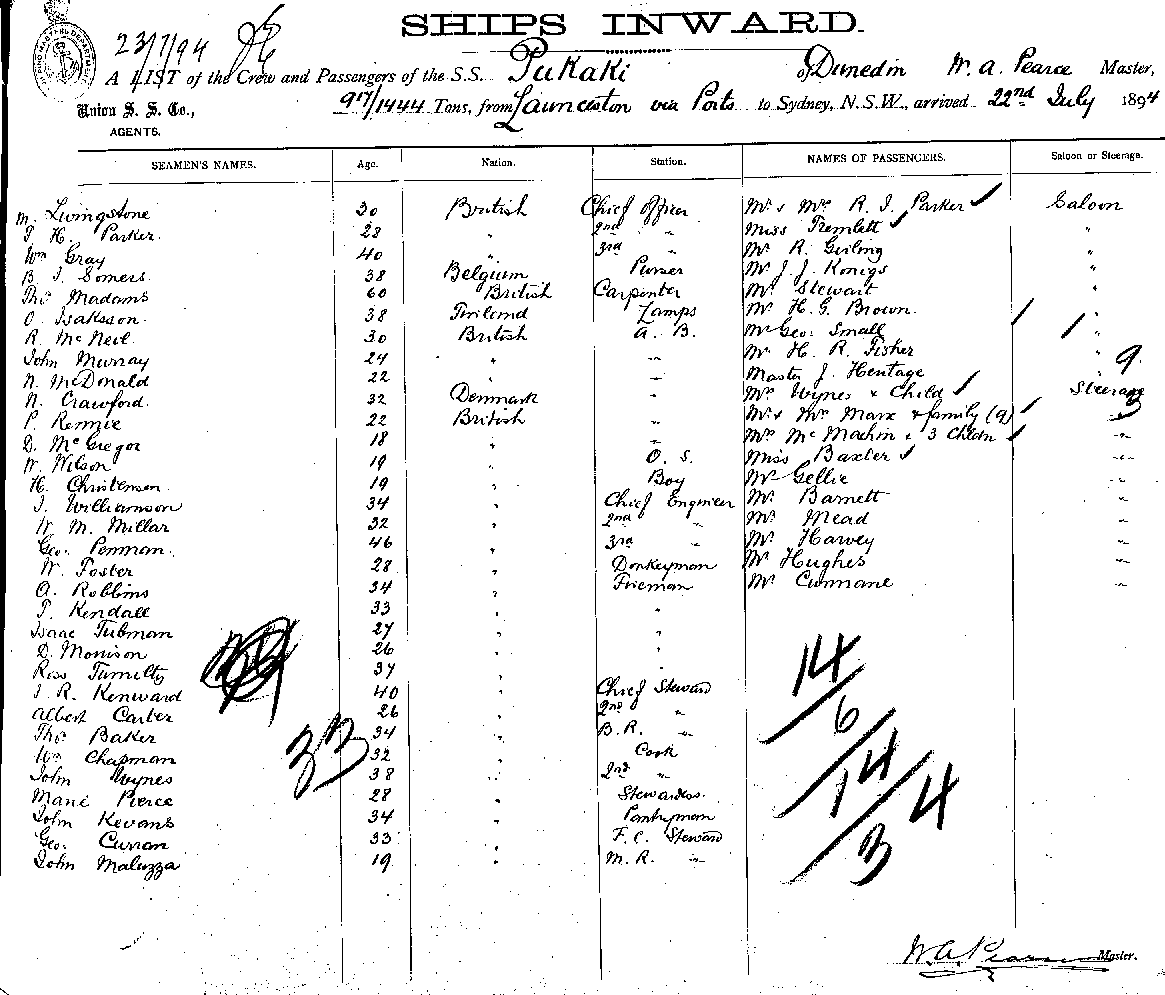 SHIPS INWARD.
23/7/94
A LIST of the Crew and Passengers of the S.S. Pukaki of Dunedin W. A. Pearce Master,
Union S. S. Co., 917/1444 Tons, from Launceston via Ports to Sydney, N.S.W., arrived 22nd July 1894
AGENTS.
SEAMEN'S NAMES. Age. Nation. Station. NAMES OF PASSENGERS. Saloon or Steerage.
M. Livingstone 30 British Chief Officer Mr & Mrs R. J. Parker ✓ Saloon
T. H. Parker. 28 " 2nd " Miss Tremlett ✓ "
Wm Gray 40 " 3rd " Mr R. Geiling "
B. J. Somers. 38 Belgium Purser Mr J. J. Konigs "
Thos Madams 60 British Carpenter Mr Stewart "
O. Isaksson. 38 Finland Lamps Mr H. G. Brown. "
R. McNeil 30 British A. B. Mr Geo. Small "
John Murray 24 " " Mr H. R. Fisher " 9
N. McDonald 22 " " Master J. Hentage
N. Crawford. 32 Denmark " Mrs Wynes & Child ✓ Steerage
P. Rennie 22 British " Mr & Mrs Marx & family (9) ✓ "
D. McGregor 18 " " Mrs McMachin & 3 Childn ✓ "
W. Wilson 19 " O. S. Miss Baxter ✓ "
H. Christensen 19 " Boy Mr Gellie "
J. Williamson 34 " Chief Engineer Mr Barnett "
W. M. Millar 32 " 2nd " Mr Mead "
Geo. Penman. 46 " 3rd " Mr Harvey "
W. Foster 28 " Donkeyman Mr Hughes "
A. Robbins 34 " Fireman Mr Cunnane "
T. Kendall 33 " "
Isaac Tubman 27 " "
D. Morrison 26 " "
Ross Tumilty 37 " "
J. R. Kenward 40 " Chief Steward
Albert Carter 26 " 2nd "
Thos Baker 34 " B.R. "
Wm Chapman 32 " Cook
John Wynes 38 " 2nd "
Marie Pierce 28 " Stewardess.
John Kevans 34 " Pantryman
Geo. Curran 33 " F. C. Steward
John Maluzza 19 " M. R. "
33
14
6
14
1
4
3
W. A. Pearce Master.